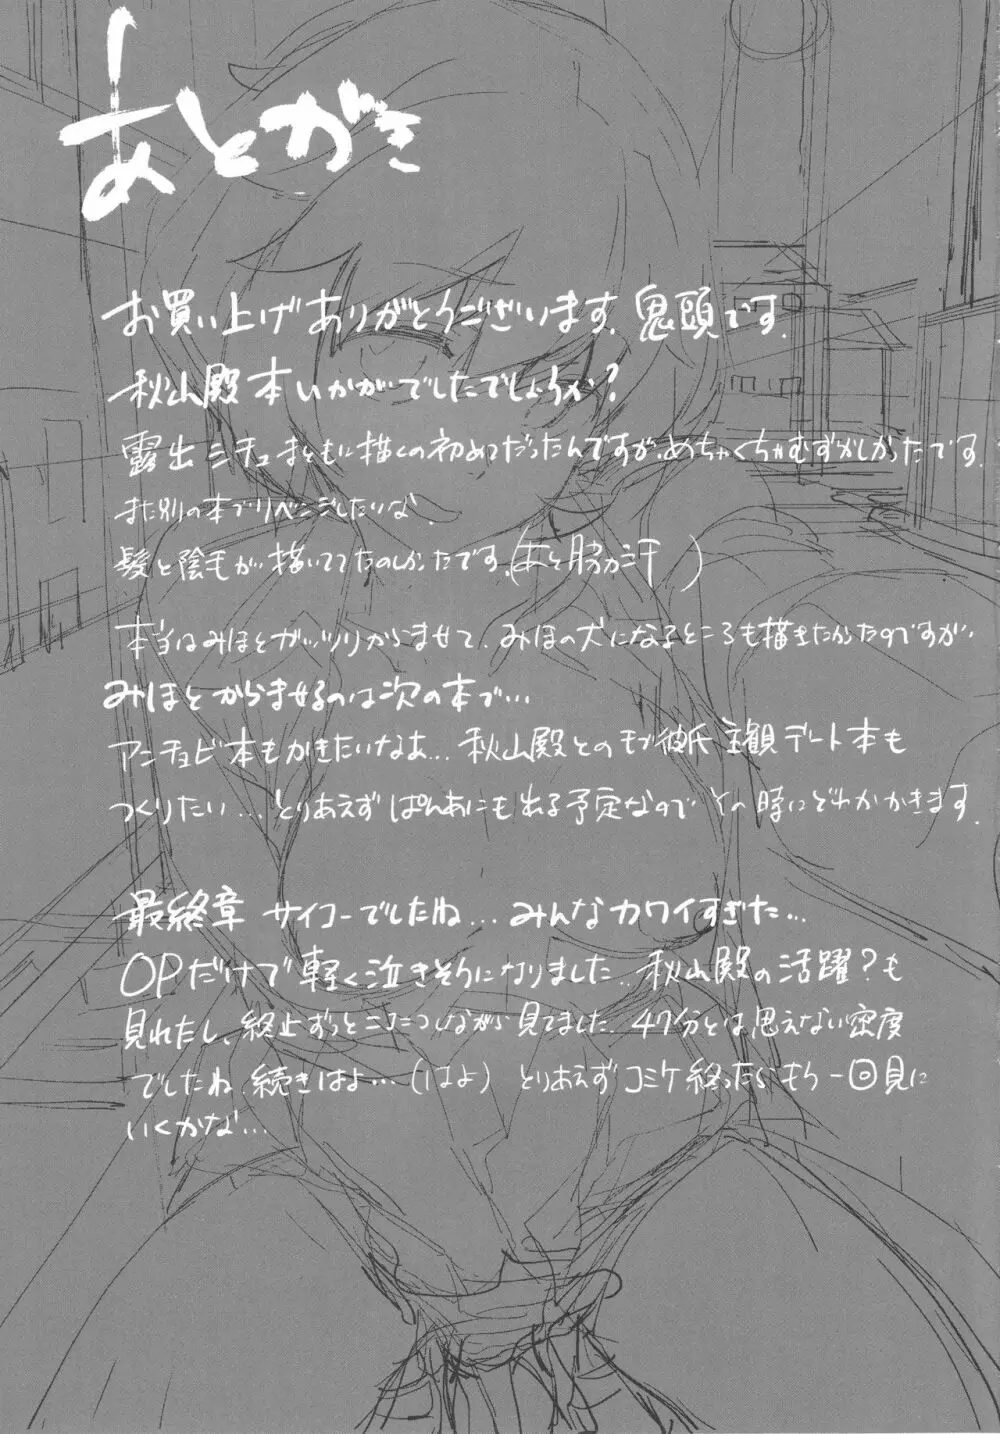 あとがき
お買い上げありがとうございます。鬼頭です。
秋山殿本いかがでしたでしょうか?
露出シチュまともに描くの初めてだったんですが、めちゃくちゃむずかしかったです。
また別の本でリベンジしたいな。
髪と陰毛が描いててたのしかたです。(あと脇汗)
本当はみほとガッツリからませて、みほの犬になるところも描きたかったのですが、
みほとからませるのは次の本で…
アンチョビ本もかきたいなぁ… 秋山殿とのモブ彼氏主観デート本も
つくりたい… とりあえずぱんあにも出る予定なのでその時にどれかかきます。
最終章 サイコーでしたね… みんなカワイすぎた…
OPだけで軽く泣きそうになりました。秋山殿の活躍?も
見れたし、終止ずっとニコニコしながら見てました。47分とは思えない密度
でしたね。続きはよ…(はよ) とりあえずコミケ終ったらもう一回見に
いくかな…